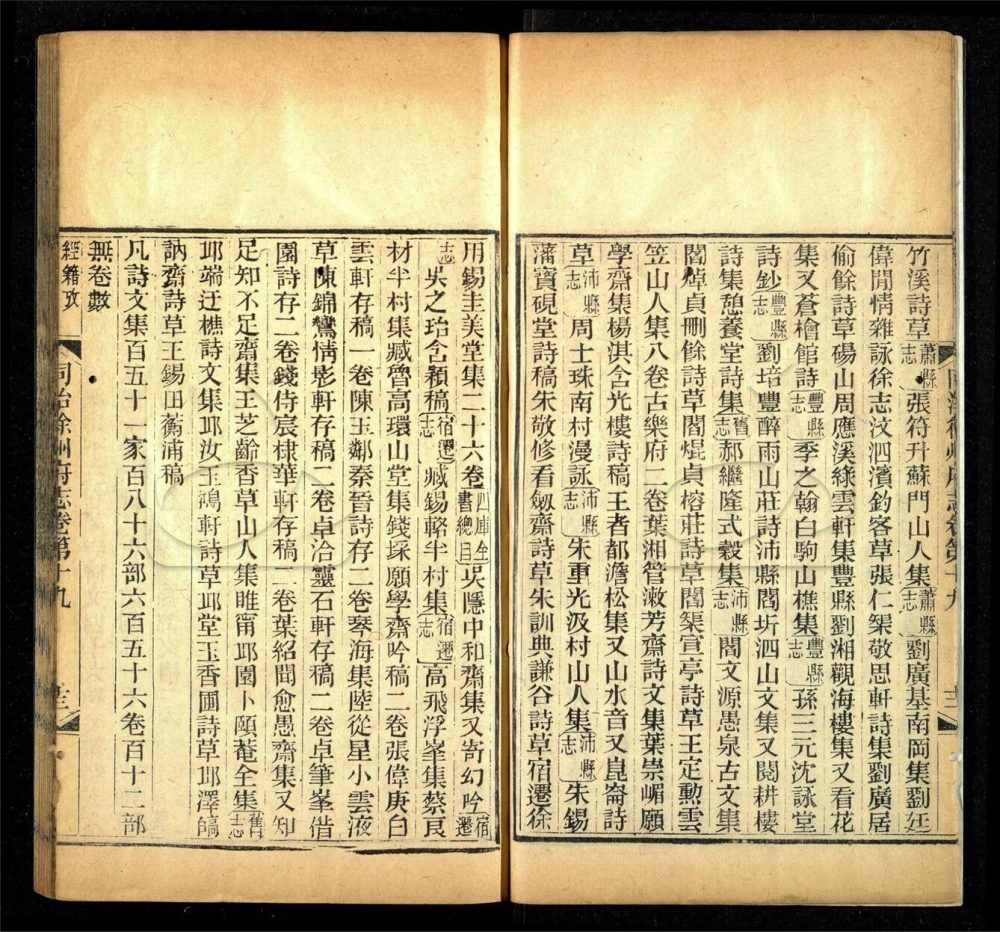 竹溪詩草蕭縣志張符升蘇門山人集蕭縣志劉廣基南岡集劉廷
偉閒情雜詠徐志汶泗濱釣客草張仁榘敬思軒詩集劉廣居
偷餘詩草碭山周應溪綠雲軒集豐縣劉湘觀海樓集又看花
集又蒼檜館詩豐縣志季之翰白駒山樵集豐縣志孫三元沈詠堂
詩鈔豐縣志劉培豐醉雨山莊詩沛縣閻圻泗山文集又閱耕樓
詩集憩養堂詩集舊志郝繼隆式穀集沛縣志閻文源愚泉古文集
閻焯貞刪餘詩草閻焜貞榕莊詩草閻榘宣亭詩草王定勲雲
笠山人集八卷古樂府二卷葉湘管漱芳齋詩文集葉崇嵋願
學齋集楊淇含光樓詩稿王者都澹松集又山水音又崑崙詩
草沛縣志周士珠南村漫詠沛縣志朱重光汲村山人集沛縣志朱錫
藩寶硯堂詩稿朱敬修看劔齋詩草朱訓典謙谷詩草宿遷徐
用錫圭美堂集二十六卷四庫全書總目吳隱中和齋集又寄幻吟宿遷
志吳之珆含穎稿宿遷志臧錫輅半村集宿遷志高飛浮峯集蔡良
材半村集臧膋高環山堂集錢琛願學齋吟稿二卷張偉庚白
雲軒存稿一卷陳玉鄰秦晉詩存二卷琴海集陸從星小雲液
草陳錦鸞情影軒存稿二卷卓洽靈石軒存稿二卷卓筆峯借
園詩存二卷錢侍宸棣華軒存稿二卷葉紹聞愈愚齋集又知
足知不足齋集王芝齡香草山人集睢甯邱園卜頤菴全集舊志
邱端迂樵詩文集邱汝玉鴻軒詩草邱堂玉香圃詩草邱澤鎬
訥齋詩草王錫田蘅浦稿
凡詩文集百五十一家百八十六部六百五十六卷百十二部
無卷數
經籍攷
同治徐州府志卷第十九